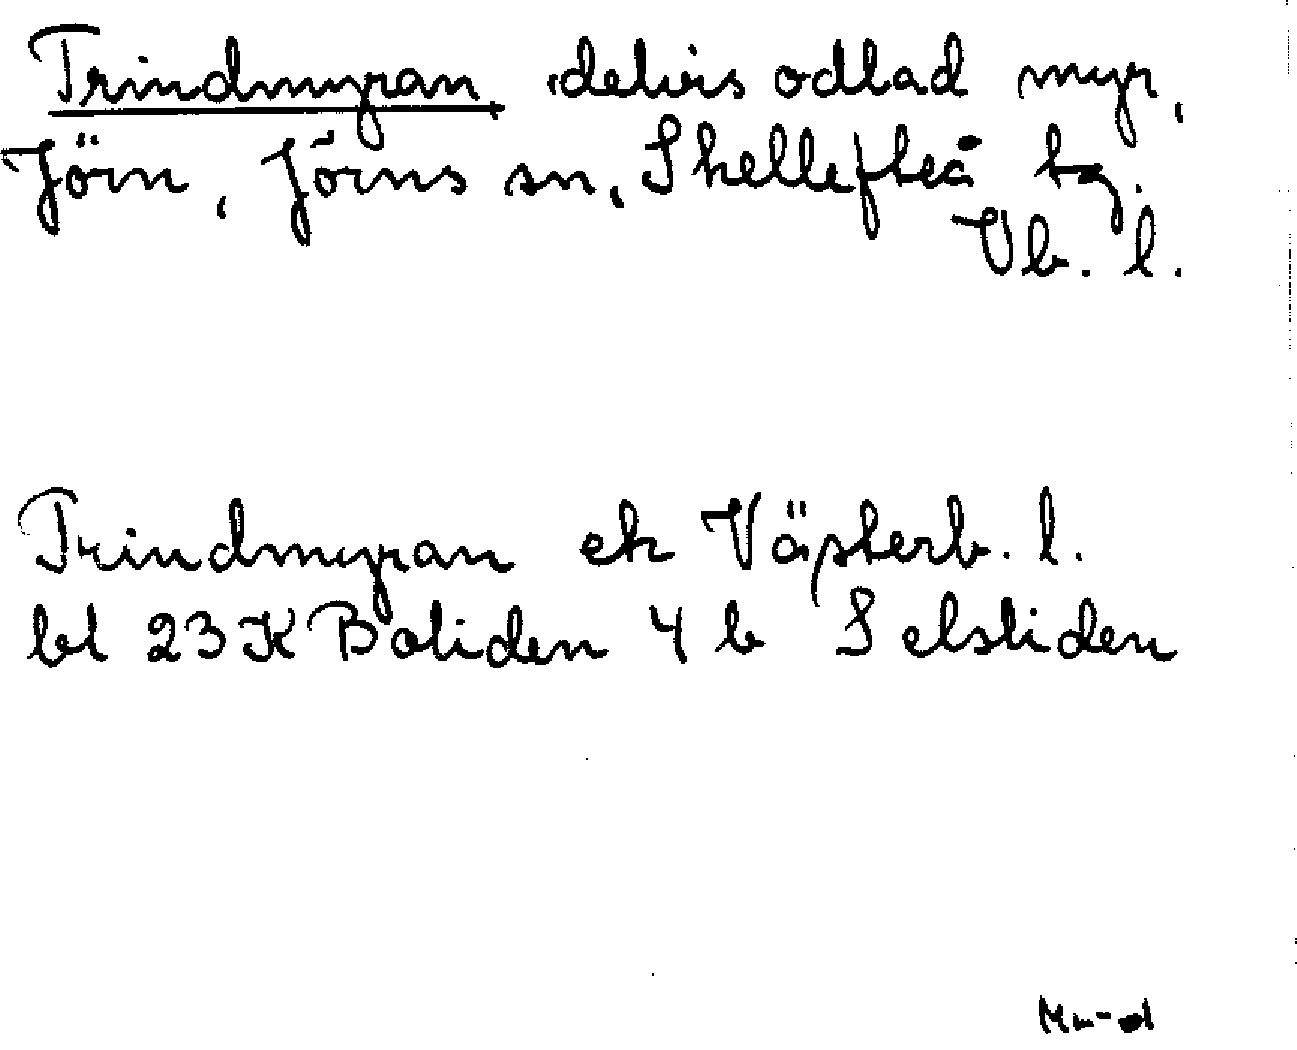 Trindmyran, delvis odlad myr,
Jörn, Jörns sn, Skellefteå tg.
Vb. l.
Trindmyran ek Västerb. l.
bl 23K Boliden 4 b Selsliden